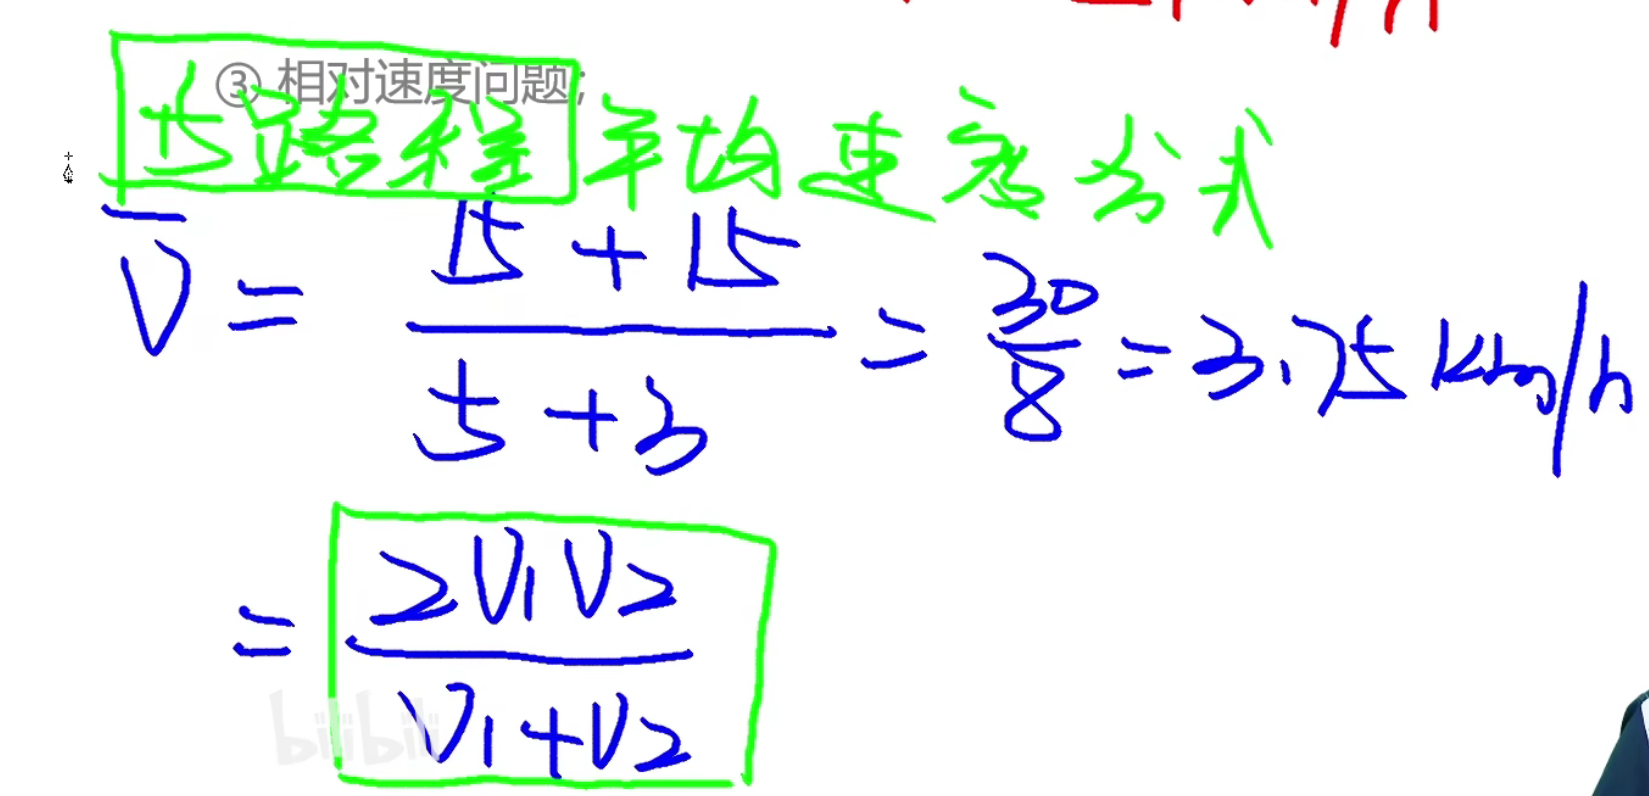 ③ 相对速度问题;
等路程平均速度公式
V̄ = (15 + 15)/(5 + 3) = 30/8 = 3.75 km/h
= 2V₁V₂/(V₁+V₂)
bilibili